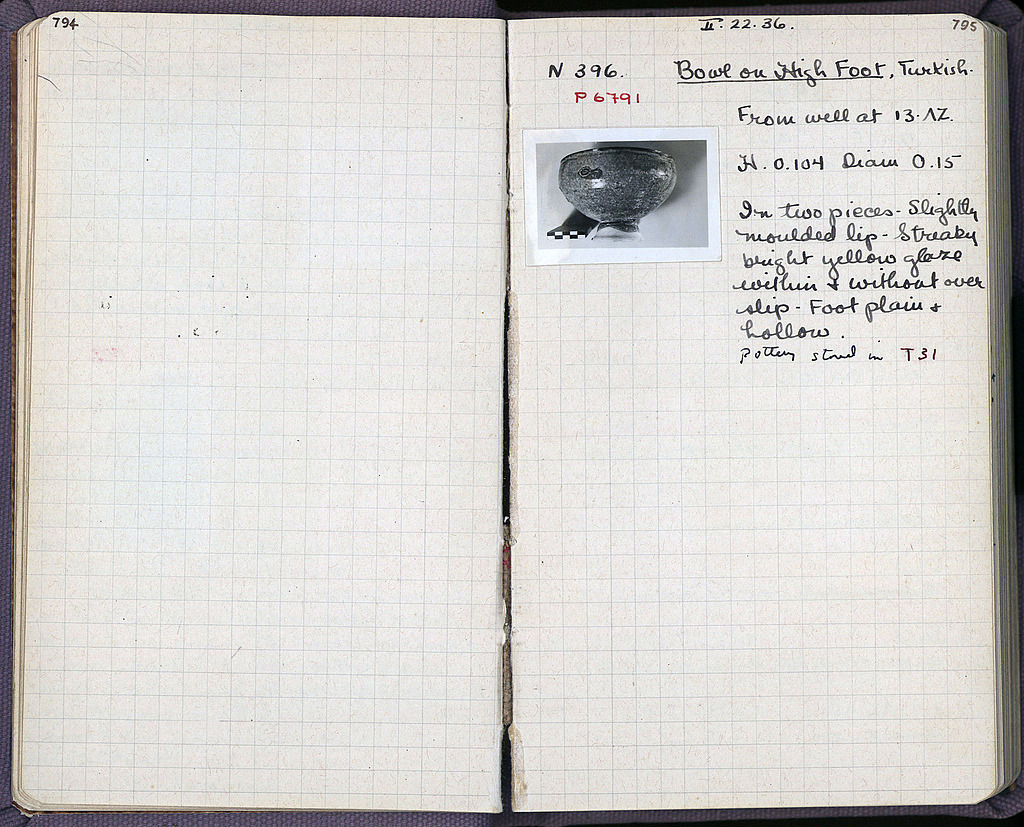 794
II. 22. 36.
795
N 396.
Bowl on High Foot, Turkish.
P 6791
From well at 13.ΛΖ.
H. 0.104 Diam 0.15
In two pieces - Slightly
moulded lip - Streaky
bright yellow glaze
within & without over
slip - Foot plain &
hollow.
pottery stored in T31